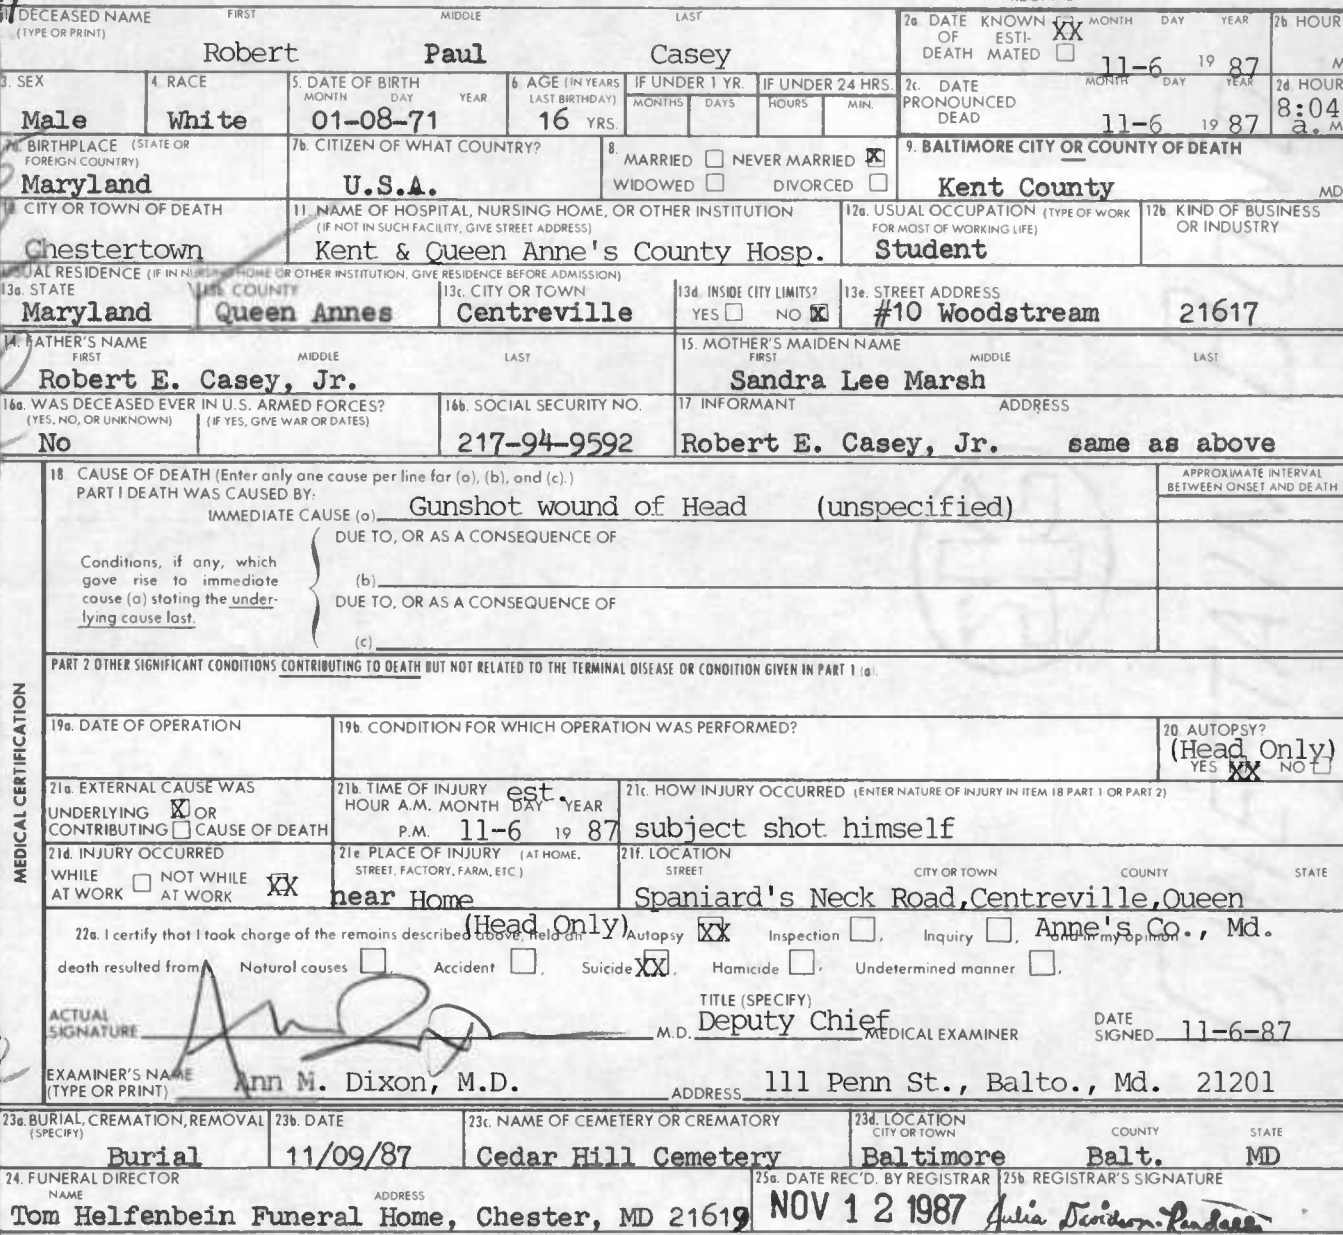 1. DECEASED NAME FIRST MIDDLE LAST
(TYPE OR PRINT)
Robert Paul Casey
2a. DATE KNOWN XX MONTH DAY YEAR
OF ESTI-
DEATH MATED 11-6 19 87
2b HOUR
M
3. SEX
Male
4. RACE
White
5. DATE OF BIRTH
MONTH DAY YEAR
01-08-71
6 AGE (IN YEARS
LAST BIRTHDAY)
16 YRS.
IF UNDER 1 YR.
MONTHS DAYS
IF UNDER 24 HRS.
HOURS MIN.
2c. DATE MONTH DAY YEAR
PRONOUNCED
DEAD 11-6 19 87
2d HOUR
8:04
a. M
7a. BIRTHPLACE (STATE OR
FOREIGN COUNTRY)
Maryland
7b. CITIZEN OF WHAT COUNTRY?
U.S.A.
8.
MARRIED NEVER MARRIED X
WIDOWED DIVORCED
9. BALTIMORE CITY OR COUNTY OF DEATH
Kent County MD
10 CITY OR TOWN OF DEATH
Chestertown
11. NAME OF HOSPITAL, NURSING HOME, OR OTHER INSTITUTION
(IF NOT IN SUCH FACILITY, GIVE STREET ADDRESS)
Kent & Queen Anne's County Hosp.
12a. USUAL OCCUPATION (TYPE OF WORK
FOR MOST OF WORKING LIFE)
Student
12b. KIND OF BUSINESS
OR INDUSTRY
USUAL RESIDENCE (IF IN NURSING HOME OR OTHER INSTITUTION, GIVE RESIDENCE BEFORE ADMISSION)
13a. STATE
Maryland
13b COUNTY
Queen Annes
13c. CITY OR TOWN
Centreville
13d. INSIDE CITY LIMITS?
YES NO X
13e. STREET ADDRESS
#10 Woodstream 21617
14. FATHER'S NAME
FIRST MIDDLE LAST
Robert E. Casey, Jr.
15. MOTHER'S MAIDEN NAME
FIRST MIDDLE LAST
Sandra Lee Marsh
16a. WAS DECEASED EVER IN U.S. ARMED FORCES?
(YES, NO, OR UNKNOWN) (IF YES, GIVE WAR OR DATES)
No
16b. SOCIAL SECURITY NO.
217-94-9592
17 INFORMANT ADDRESS
Robert E. Casey, Jr. same as above
18 CAUSE OF DEATH (Enter only one cause per line for (a), (b), and (c).)
PART I DEATH WAS CAUSED BY:
IMMEDIATE CAUSE (a) Gunshot wound of Head (unspecified)
APPROXIMATE INTERVAL
BETWEEN ONSET AND DEATH
DUE TO, OR AS A CONSEQUENCE OF
Conditions, if any, which
gave rise to immediate
cause (a) stating the under-
lying cause last.
(b)
DUE TO, OR AS A CONSEQUENCE OF
(c)
PART 2 OTHER SIGNIFICANT CONDITIONS CONTRIBUTING TO DEATH BUT NOT RELATED TO THE TERMINAL DISEASE OR CONDITION GIVEN IN PART 1 (a).
MEDICAL CERTIFICATION
19a. DATE OF OPERATION
19b. CONDITION FOR WHICH OPERATION WAS PERFORMED?
20 AUTOPSY?
(Head Only)
YES XX NO
21a. EXTERNAL CAUSE WAS
UNDERLYING X OR
CONTRIBUTING CAUSE OF DEATH
21b. TIME OF INJURY est.
HOUR A.M. MONTH DAY YEAR
P.M. 11-6 19 87
21c. HOW INJURY OCCURRED (ENTER NATURE OF INJURY IN ITEM 18 PART 1 OR PART 2)
subject shot himself
21d. INJURY OCCURRED
WHILE NOT WHILE
AT WORK AT WORK XX
21e PLACE OF INJURY (AT HOME,
STREET, FACTORY, FARM, ETC)
near Home
21f. LOCATION
STREET CITY OR TOWN COUNTY STATE
Spaniard's Neck Road,Centreville,Queen
Anne's Co., Md.
(Head Only)
22a. I certify that I took charge of the remains described above, held an Autopsy XX Inspection , Inquiry , and in my opinion
death resulted from Natural causes , Accident , Suicide XX, Homicide , Undetermined manner ,
ACTUAL
SIGNATURE M.D.
TITLE (SPECIFY)
Deputy Chief MEDICAL EXAMINER
DATE
SIGNED 11-6-87
EXAMINER'S NAME
(TYPE OR PRINT) Ann M. Dixon, M.D.
ADDRESS 111 Penn St., Balto., Md. 21201
23a. BURIAL, CREMATION, REMOVAL
(SPECIFY)
Burial
23b. DATE
11/09/87
23c. NAME OF CEMETERY OR CREMATORY
Cedar Hill Cemetery
23d. LOCATION
CITY OR TOWN COUNTY STATE
Baltimore Balt. MD
24. FUNERAL DIRECTOR
NAME ADDRESS
Tom Helfenbein Funeral Home, Chester, MD 21619
25a. DATE REC'D. BY REGISTRAR
NOV 12 1987
25b REGISTRAR'S SIGNATURE
Julia Davidson-Randall